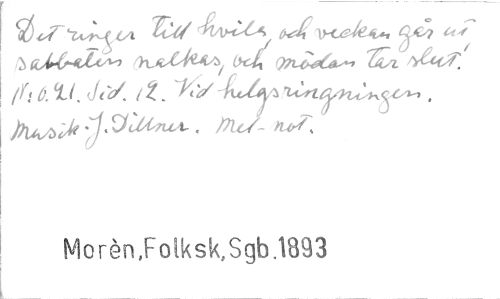 Det ringer till hvila, och veckan går ut,
sabbaten nalkas, och mödan tar slut.
N:o.21. Sid. 12. Vid helgsringningen.
Musik: J. Dillner. Mel-not.
Morèn,Folksk,Sgb.1893